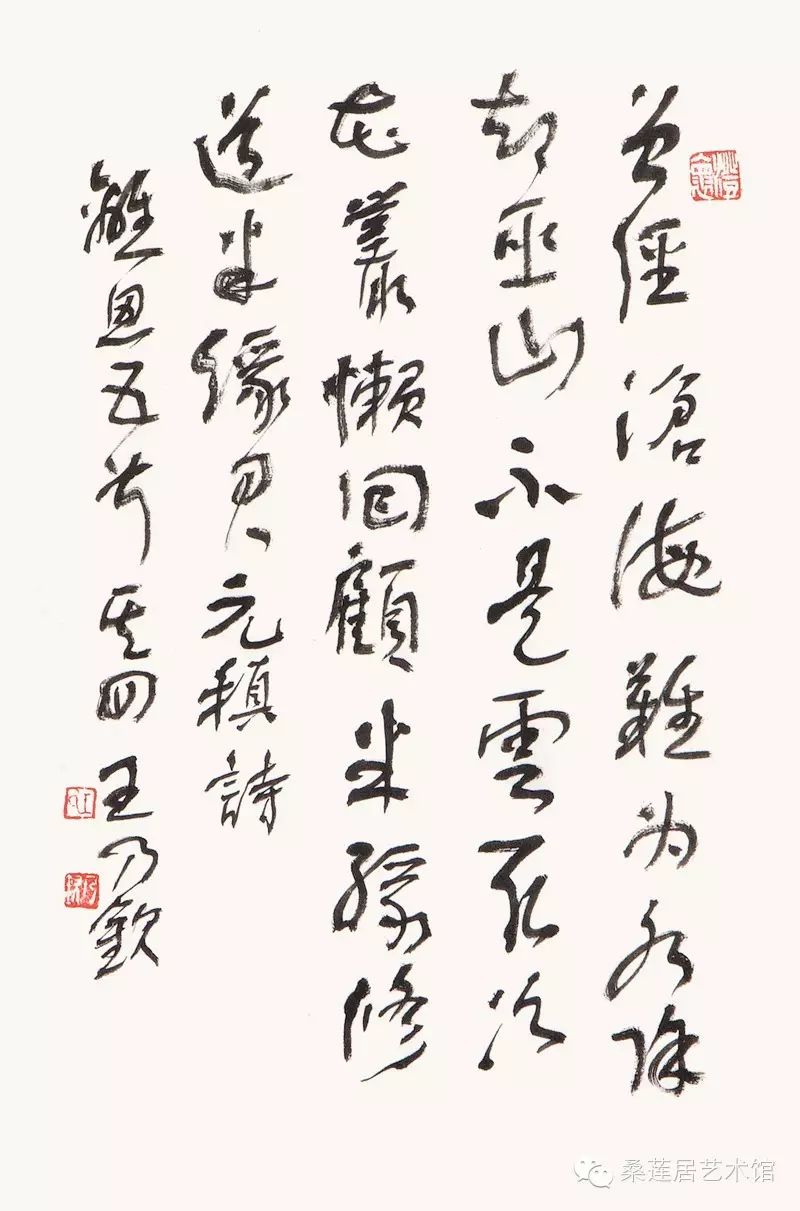 曾經滄海難为水除
却巫山不是雲取次
花叢懶回顧半緣修
道半緣君元稹詩
離思五首其四王乃欽
桑莲居艺术馆